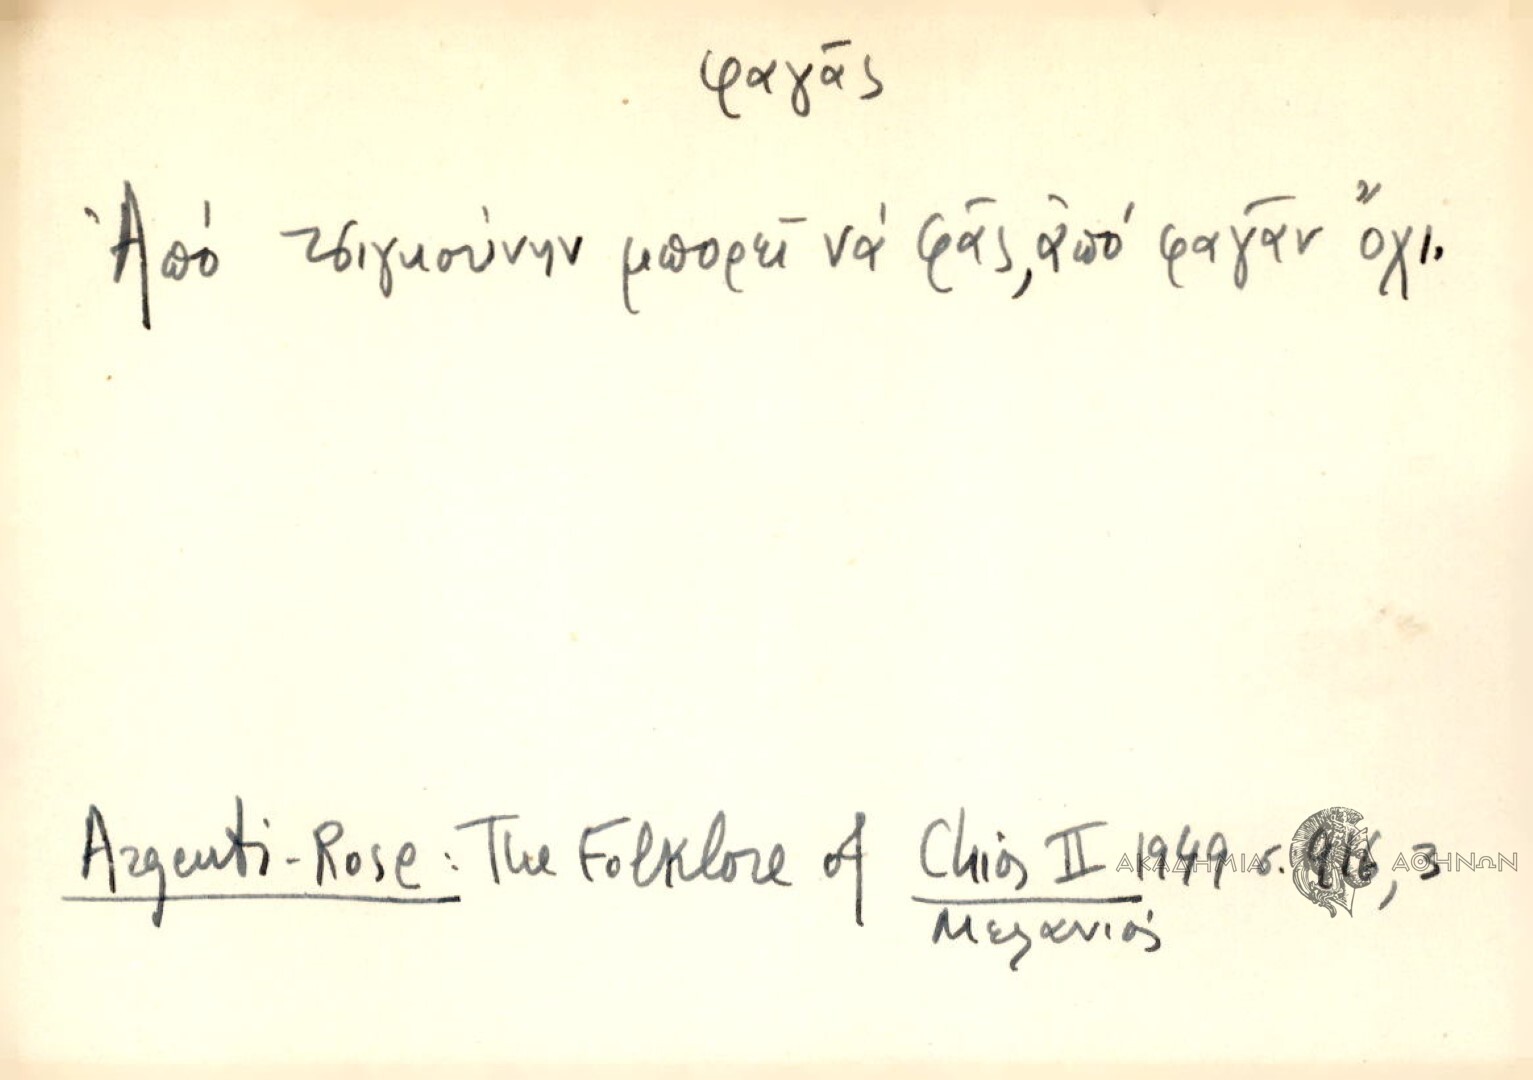 φαγᾶς
Ἀπό τσιγκούνην μπορεῖ νά φᾶς, ἀπό φαγᾶν ὄχι.
Argenti-Rose: The Folklore of Chios II 1949 σ. , 3
ΑΚΑΔΗΜΙΑ ΑΘΗΝΩΝ